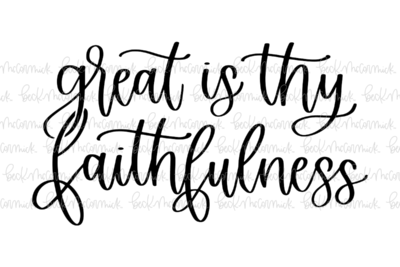 great is thy
faithfulness